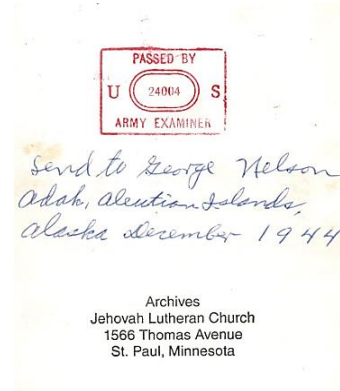 PASSED BY
U 24004 S
ARMY EXAMINER
Send to George Nelson
Adak, Aleutian Islands,
Alaska December 1944
Archives
Jehovah Lutheran Church
1566 Thomas Avenue
St. Paul, Minnesota